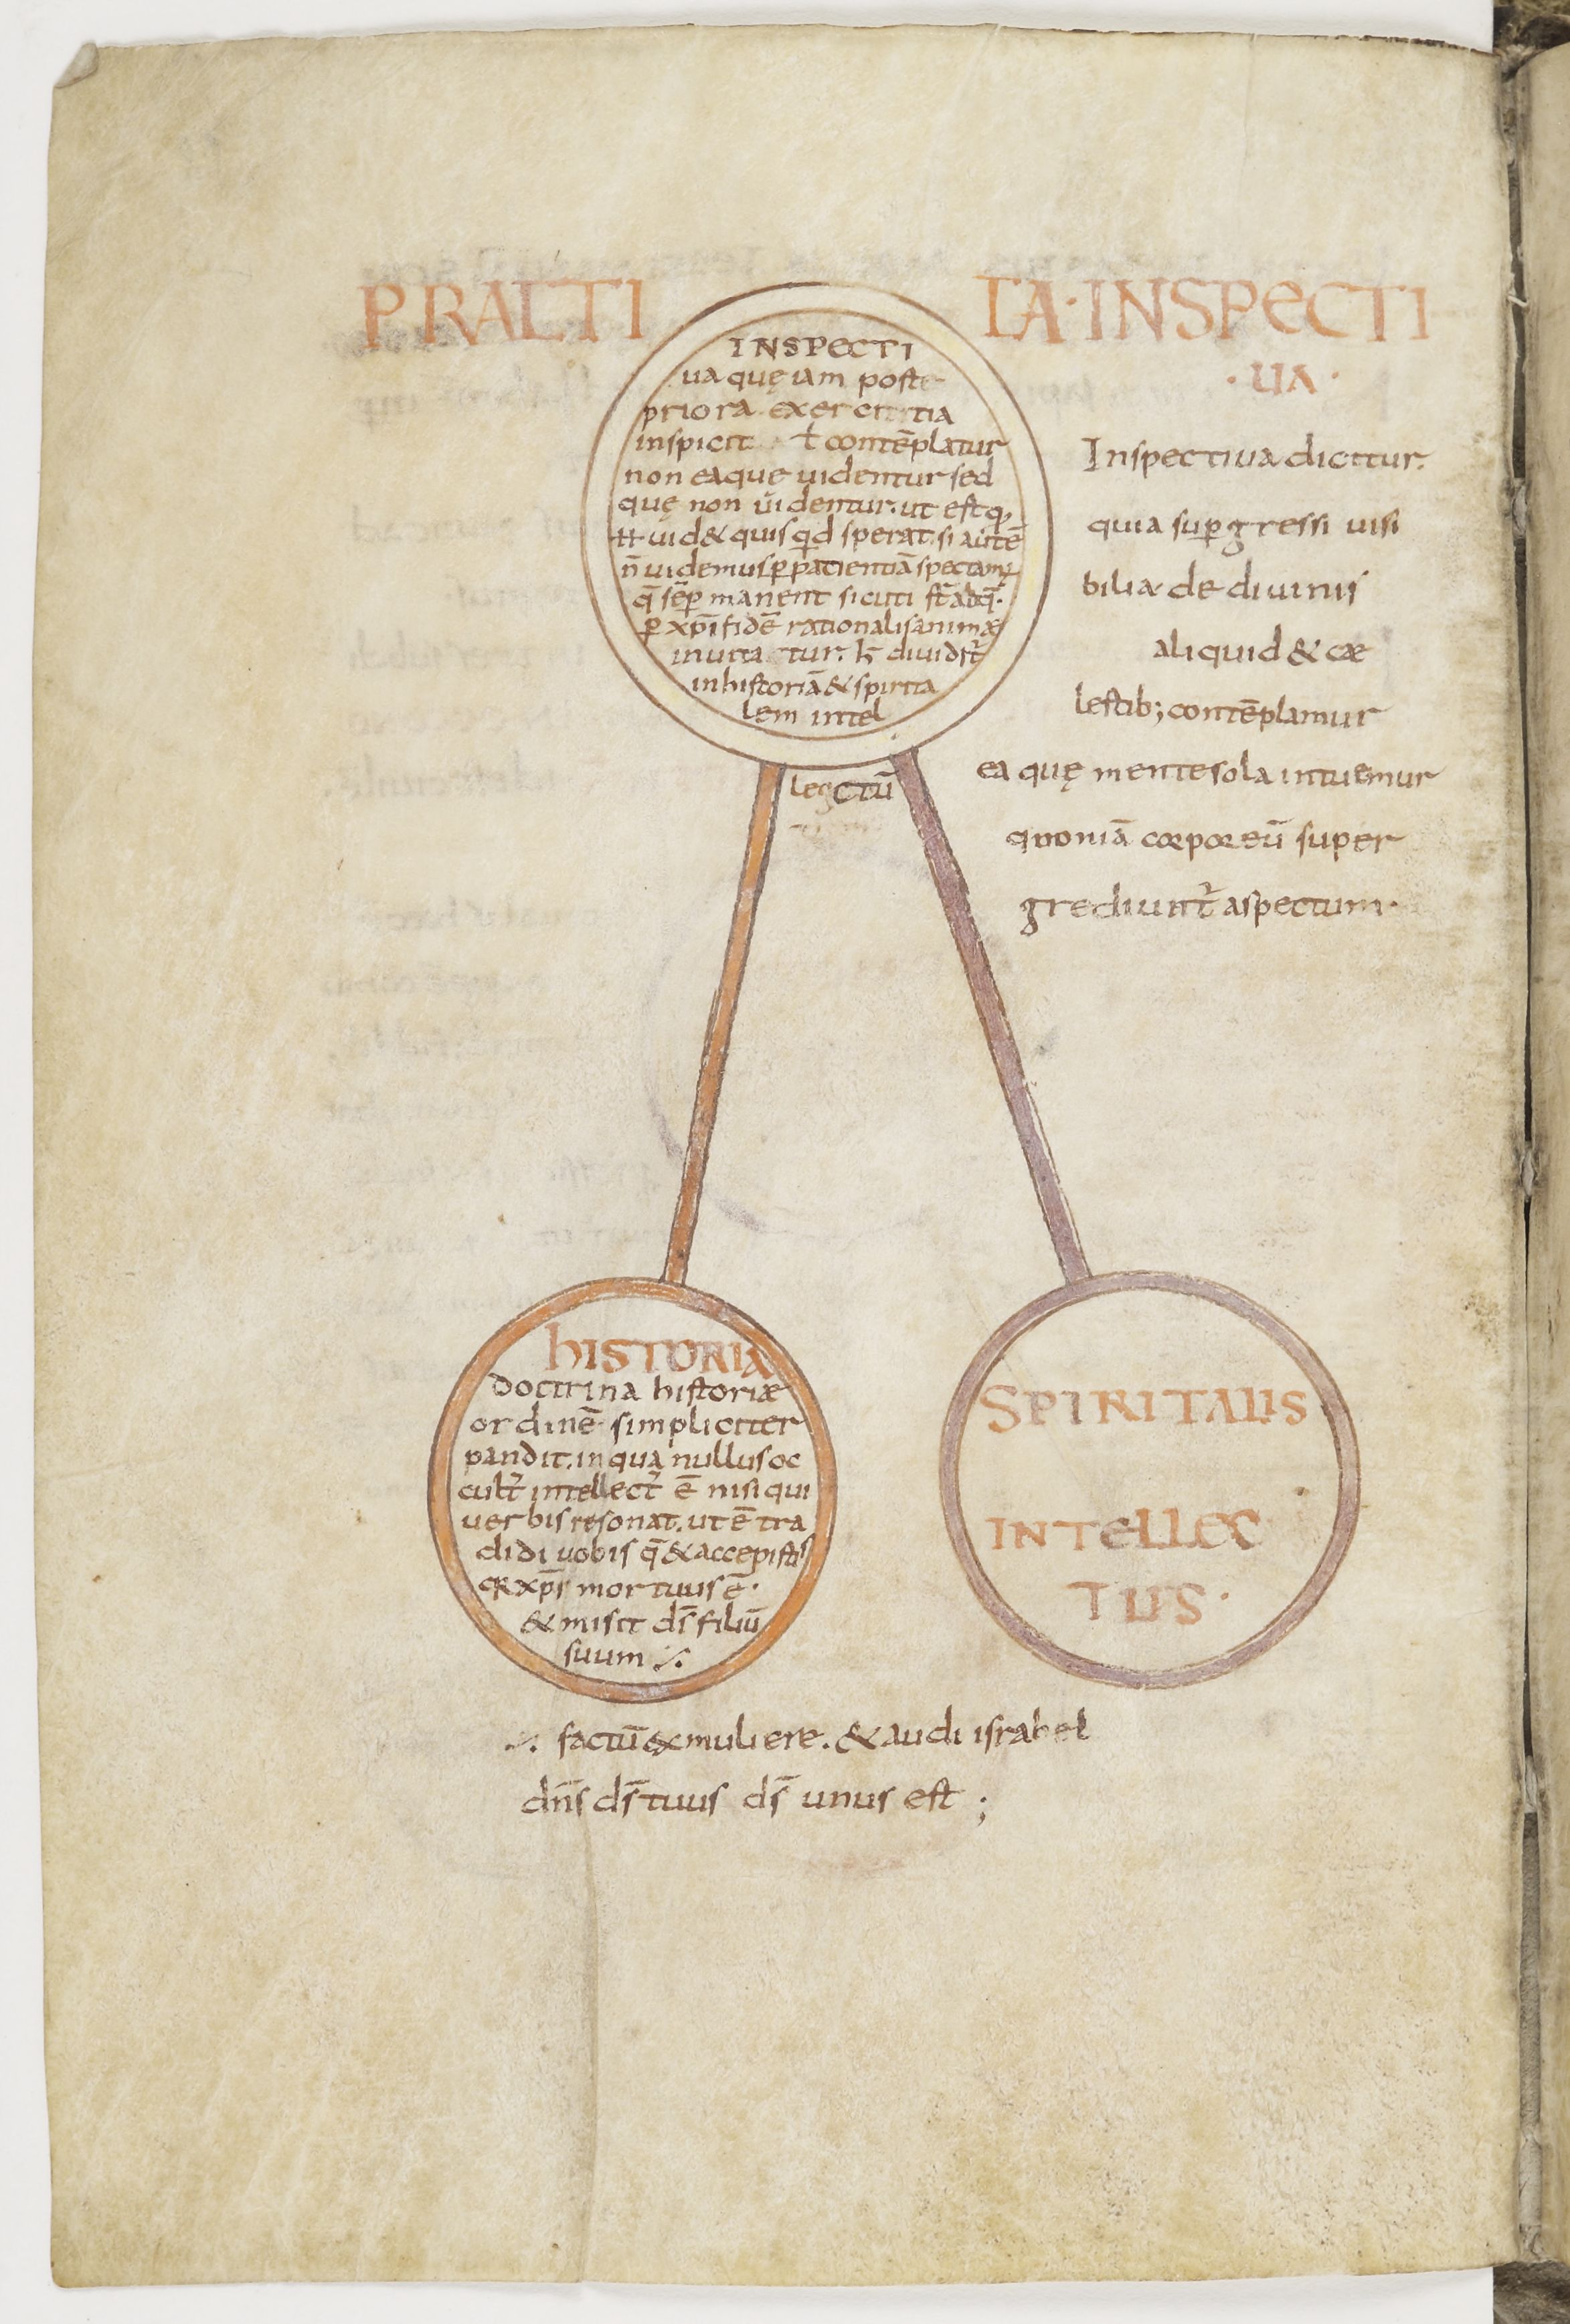 PRACTI CA·INSPECTI
·UA·
INSPECTI
ua quę iam poste
priora exercitia
inspicit ł contēplatur
non ea que uidentur sed
quę non uidentur. ut est qd
uid& quis qid sperat. si autē
n̄ uidemus p patientiā spectam;
q̄ sēp manent sicuti st̄ ad q̄
p xp̄i fidē rationalis animæ
inuita tur. h̄ diuidit᷑
in historiā & spirita
lem intel
legctū
Inspectiua dicitur.
quia supgressi uisi
bilia de diuinis
aliquid & cæ
lestib; contēplamur
ea quę mente sola intuemur
quoniā corporeū super
grediunt᷑ aspectum·
HISTORIA
Doctrina historiæ
ordinē simpliciter
pandit. in qua nullus oc
cult᷑ intellect᷑ ē nisi qui
uerbis resonat. ut ē tra
didi uobis q̄ & accepistis
qR xp̄s mortuus ē·
& misit ds̄ filiū
suum ⁒
SPIRITALIS
INTELLEC
TUS·
⁒ factū ex muliere. & audi israhel
dn̄s ds̄ tuus ds̄ unus est ;